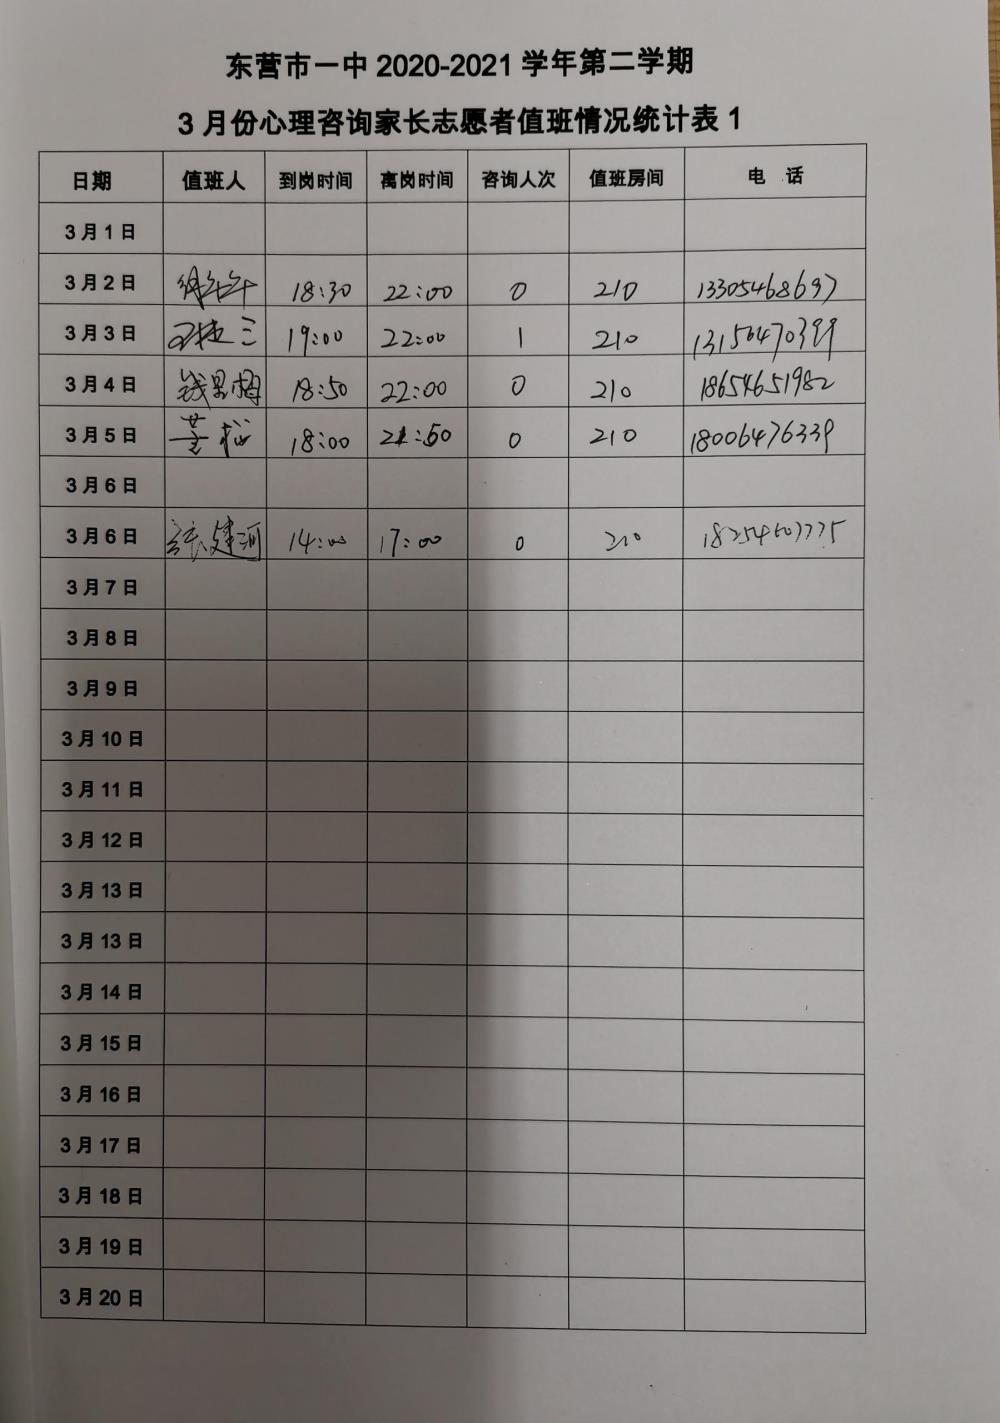 东营市一中 2020-2021 学年第二学期
3 月份心理咨询家长志愿者值班情况统计表 1
日期 值班人 到岗时间 离岗时间 咨询人次 值班房间 电 话
3 月 1 日
3 月 2 日 18:30 22:00 0 210 13305468697
3 月 3 日 19:00 22:00 1 210 13156470399
3 月 4 日 18:50 22:00 0 210 18654651982
3 月 5 日 18:00 21:50 0 210 18006476339
3 月 6 日
3 月 6 日 张建河 14:00 17:00 0 210
3 月 7 日
3 月 8 日
3 月 9 日
3 月 10 日
3 月 11 日
3 月 12 日
3 月 13 日
3 月 13 日
3 月 14 日
3 月 15 日
3 月 16 日
3 月 17 日
3 月 18 日
3 月 19 日
3 月 20 日